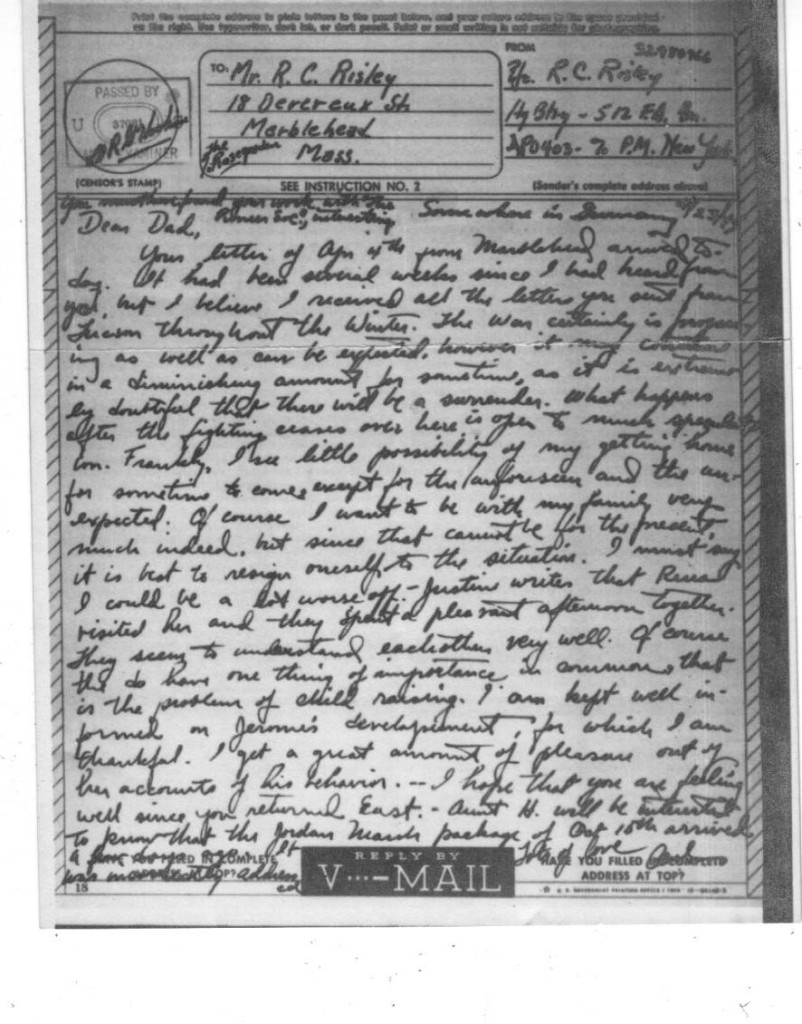 Print the complete address in plain letters in the panel below, and your return address in the space provided
on the right. Use typewriter, dark ink, or dark pencil. Faint or small writing is not suitable for photographing.
FROM
TO: Mr. R. C. Risley
18 Devereux St
Marblehead
Mass.
Pfc. R. C. Risley
Hq Btry - 512 F.A. Bn.
APO 403 - % P.M. New York
PASSED BY
U
(CENSOR'S STAMP)
SEE INSTRUCTION NO. 2
(Sender's complete address above)
you must find your work with the
interesting
Somewhere in Germany
Dear Dad,
Your letter of Apr 4th from Marblehead arrived to-
day. It had been several weeks since I had heard from
you, but I believe I received all the letters you sent from
Tucson throughout the Winter. The War certainly is progress
ing as well as can be expected, however it may continue
in a diminishing amount for sometime, as it is extreme
ly doubtful that there will be a surrender. What happens
after the fighting ceases over here is open to much specula
tion. Frankly, I see little possibility of my getting home
for sometime to come, except for the unforeseen and the un-
expected. Of course I want to be with my family very
much indeed, but since that cannot be for the present,
it is best to resign oneself to the situation. I must say
I could be a lot worse off. - Justine writes that
visited her and they spent a pleasant afternoon together.
They seem to understand eachother very well. Of course
the do have one thing of importance in common, that
is the problem of child raising. I am kept well in-
formed on Jerome's development, for which I am
thankful. I get a great amount of pleasure out of
her accounts of his behavior. -- I hope that you are feeling
well since you returned East. - Aunt H. will be interested
to know that the Jordan Marsh package of Oct 15th arrived
a few days ago. It
was address
ed
Lots of love
REPLY BY
V···—MAIL
HAVE YOU FILLED IN COMPLETE
ADDRESS AT TOP?
HAVE YOU FILLED IN COMPLETE
ADDRESS AT TOP?
18